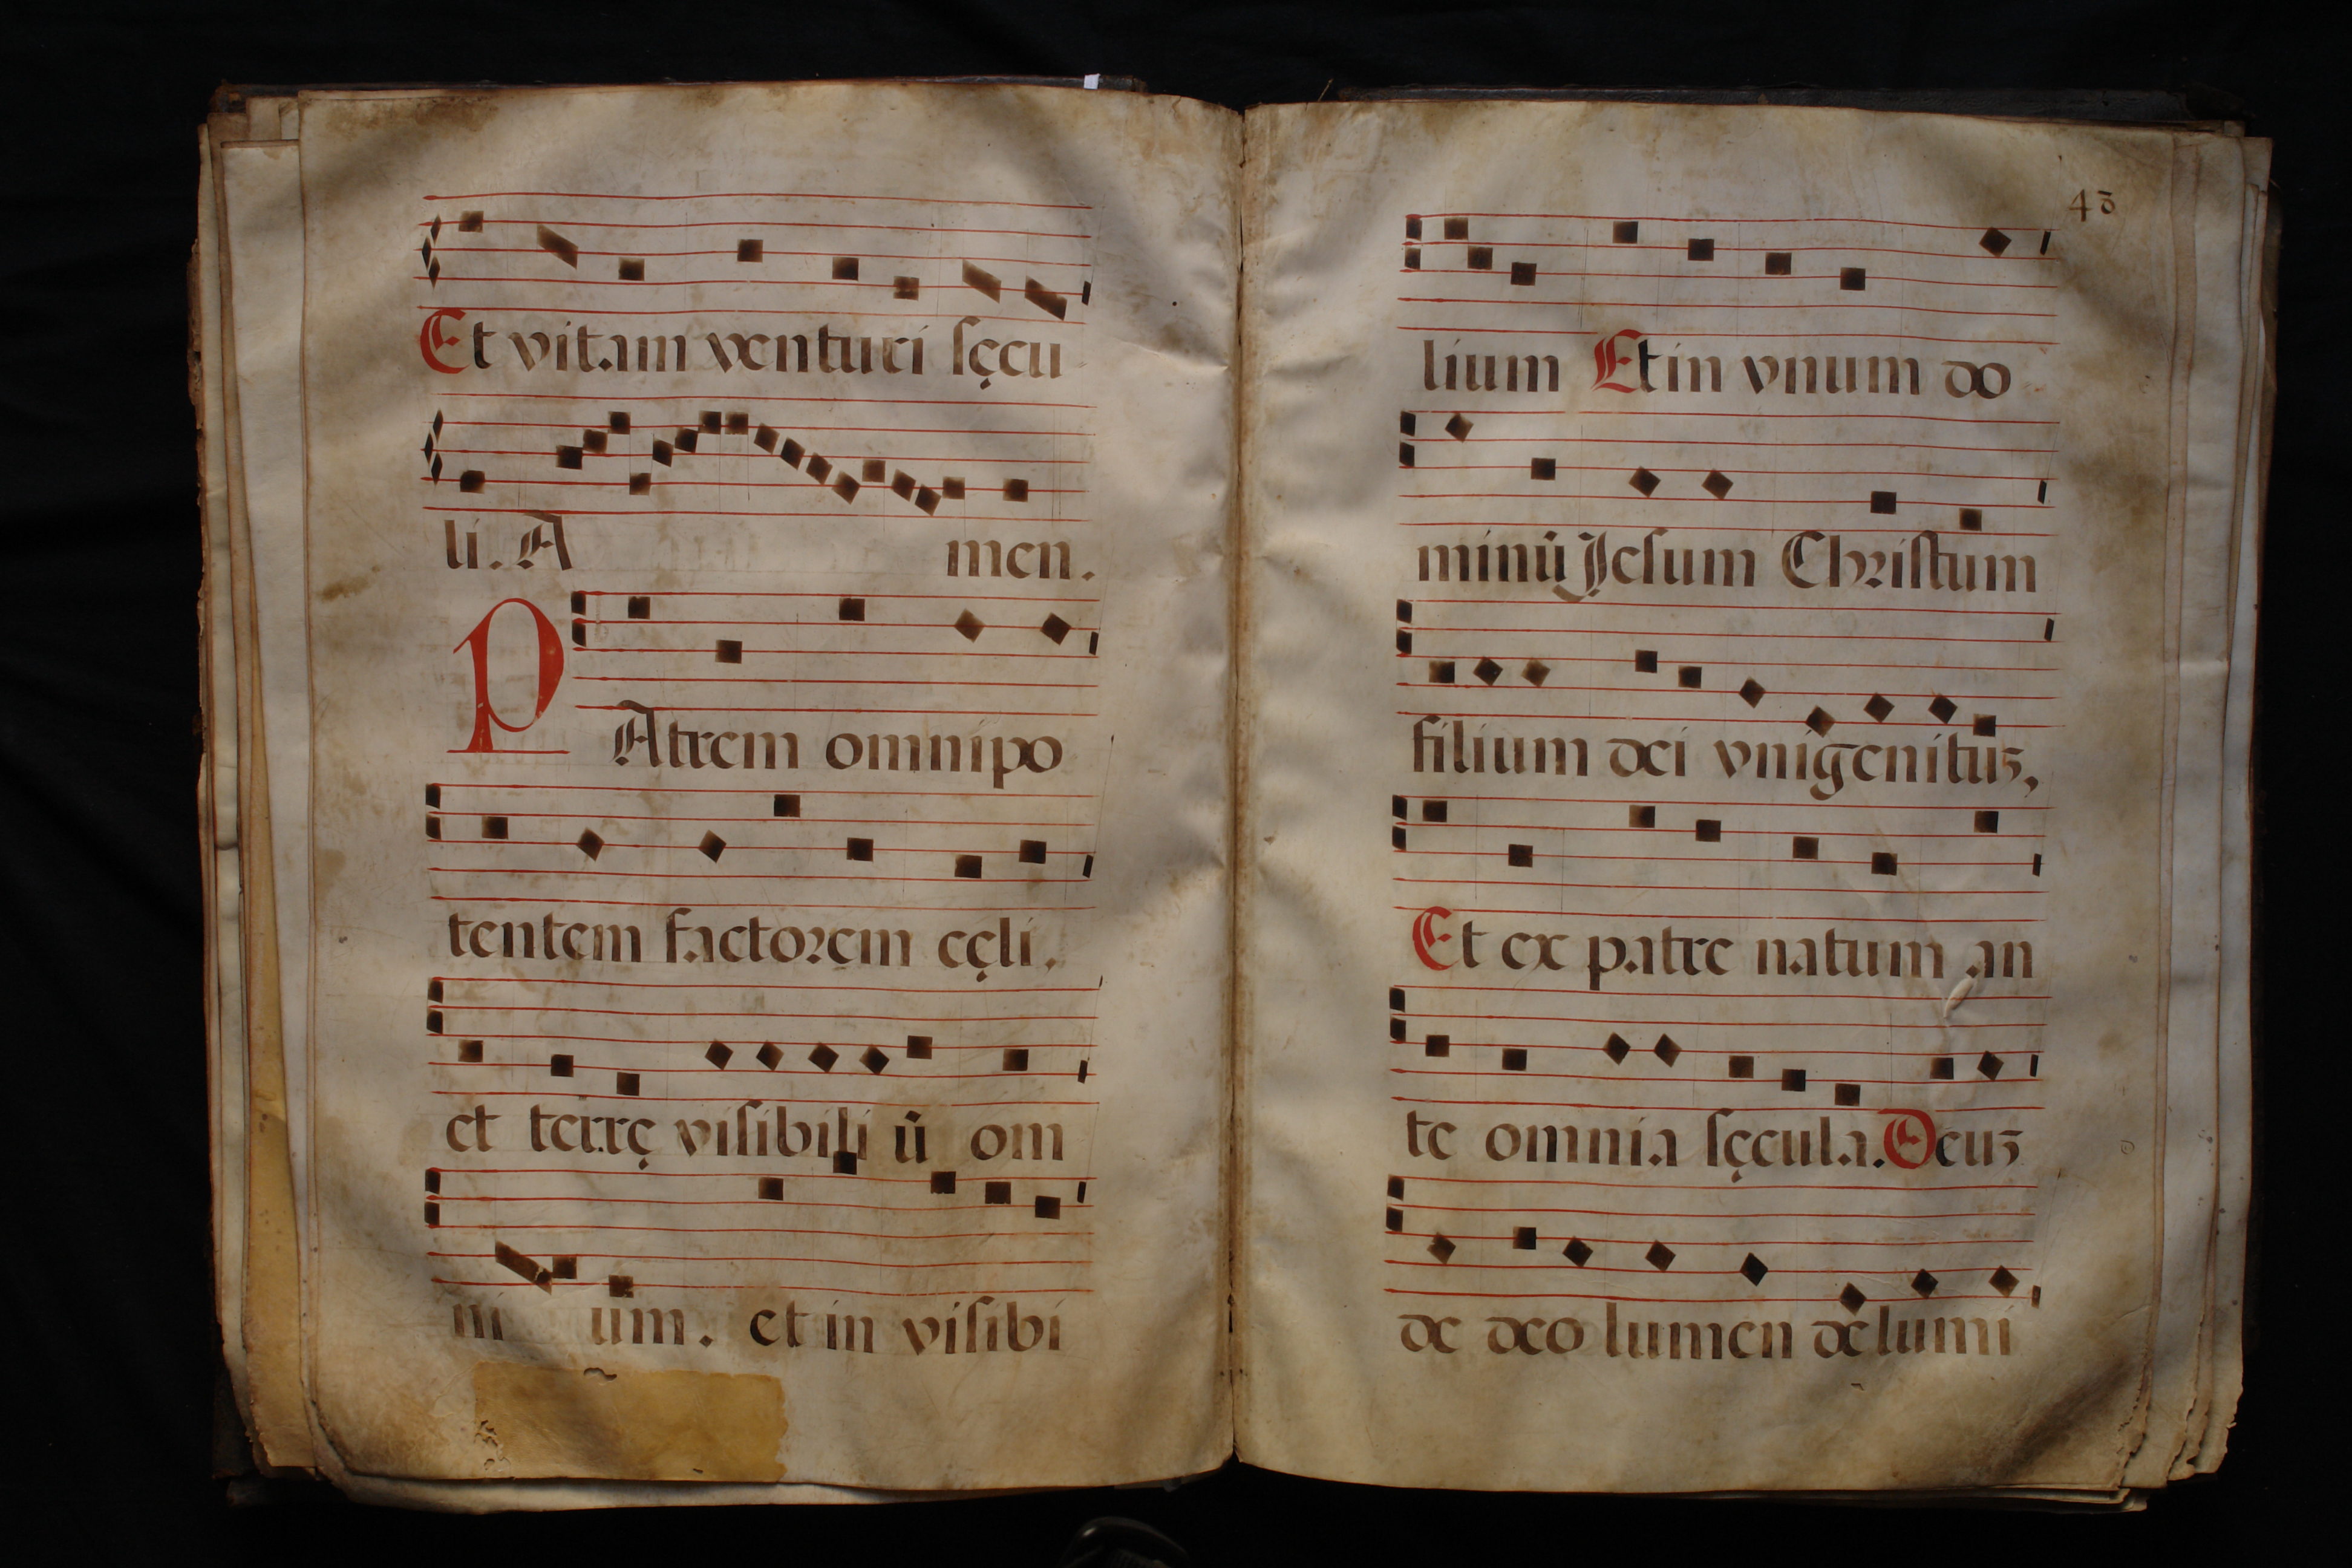 Et vitam venturi sęcu
li. A men.
PAtrem omnipo
tentem factorem cęli.
et terrę visibili ū om
ni um. et in visibi
43
lium Et in vnum do
minū Jesum Christum
filium dei vnigenitus,
Et ex patre natum an
te omnia sęcula. Deus
de deo lumen de lumi